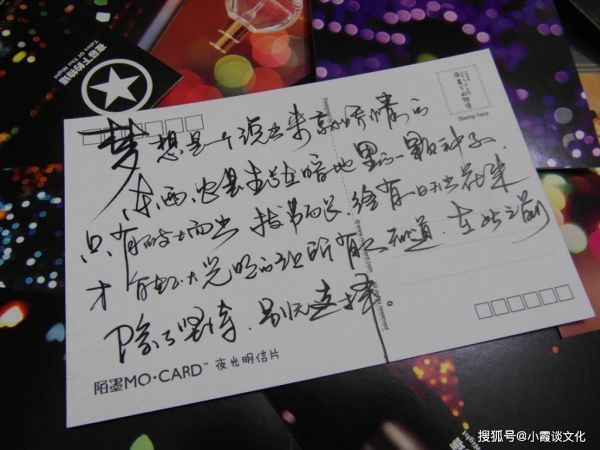 Tales Of The Night
Stamp here
梦想是一个说出来就矫情的
东西,它是生在暗地里的一颗种子,
只有破土而出 拔节而长,终有一日开出花来
才能正大光明的让所有人知道,在此之前
除了坚持,别无选择
陌墨MO·CARD™ 夜光明信片
Night
搜狐号@小霞谈文化